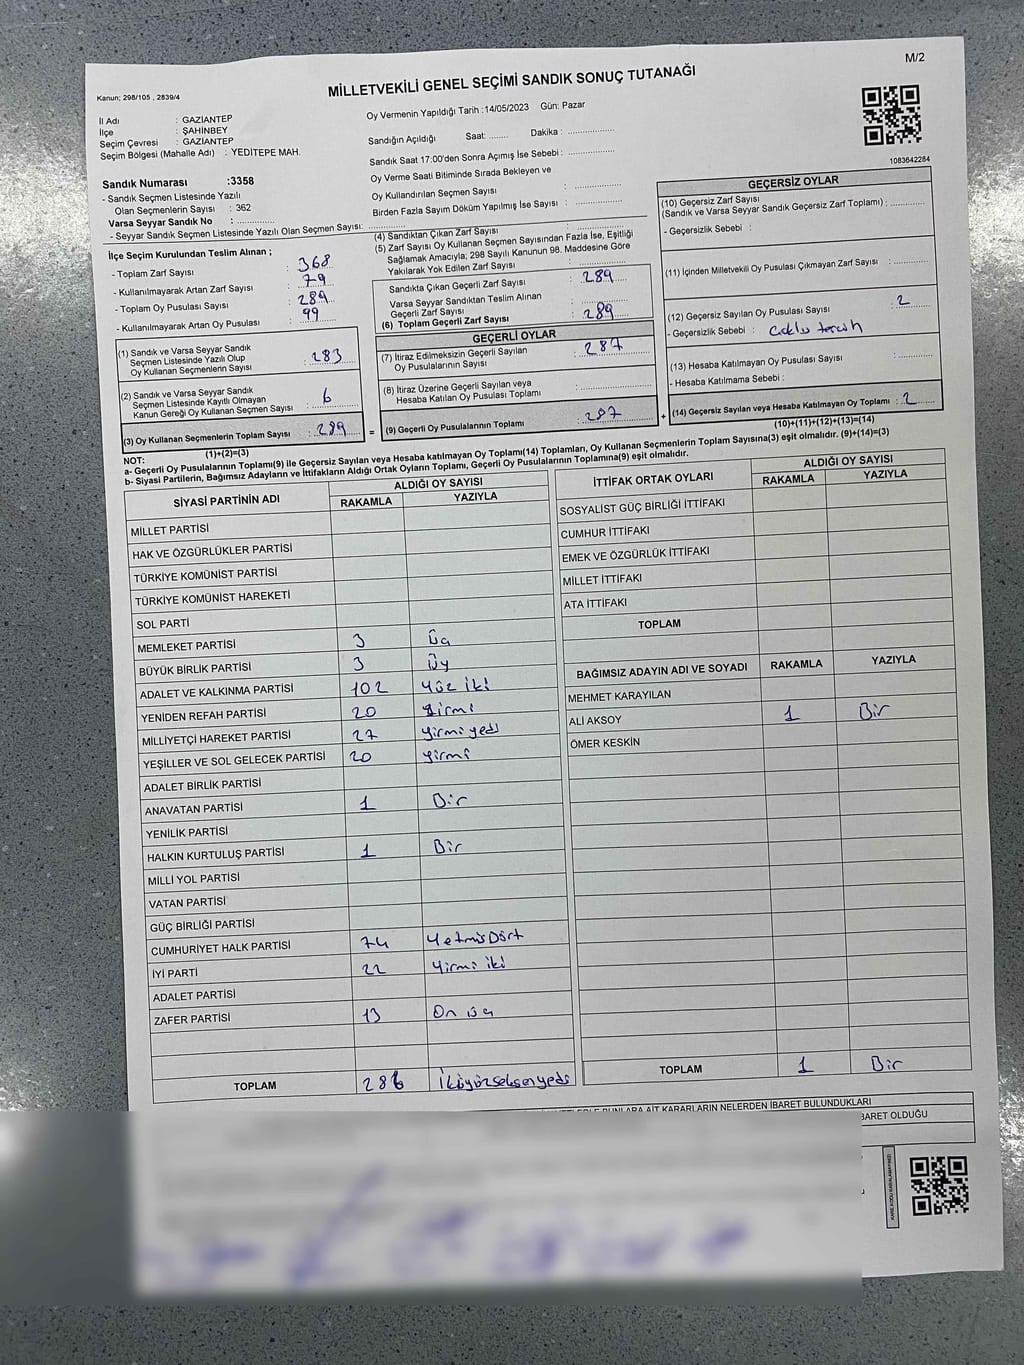 M/2
MİLLETVEKİLİ GENEL SEÇİMİ SANDIK SONUÇ TUTANAĞI
Kanun; 298/105 , 2839/4
İl Adı : GAZİANTEP
İlçe : ŞAHİNBEY
Seçim Çevresi : GAZİANTEP
Seçim Bölgesi (Mahalle Adı) : YEDİTEPE MAH.
Sandık Numarası :3358
- Sandık Seçmen Listesinde Yazılı
Olan Seçmenlerin Sayısı : 362
Varsa Seyyar Sandık No :
- Seyyar Sandık Seçmen Listesinde Yazılı Olan Seçmen Sayısı:
Oy Vermenin Yapıldığı Tarih :14/05/2023 Gün: Pazar
Sandığın Açıldığı Saat: Dakika :
Sandık Saat 17:00'den Sonra Açımış İse Sebebi :
Oy Verme Saati Bitiminde Sırada Bekleyen ve
Oy Kullandırılan Seçmen Sayısı :
Birden Fazla Sayım Döküm Yapılmış İse Sayısı :
1083642284
İlçe Seçim Kurulundan Teslim Alınan ;
- Toplam Zarf Sayısı : 368
- Kullanılmayarak Artan Zarf Sayısı : 79
- Toplam Oy Pusulası Sayısı : 289
- Kullanılmayarak Artan Oy Pusulası : 99
(1) Sandık ve Varsa Seyyar Sandık
Seçmen Listesinde Yazılı Olup
Oy Kullanan Seçmenlerin Sayısı : 283
(2) Sandık ve Varsa Seyyar Sandık
Seçmen Listesinde Kayıtlı Olmayan
Kanun Gereği Oy Kullanan Seçmen Sayısı : 6
(3) Oy Kullanan Seçmenlerin Toplam Sayısı : 289
(1)+(2)=(3)
(4) Sandıktan Çıkan Zarf Sayısı :
(5) Zarf Sayısı Oy Kullanan Seçmen Sayısından Fazla İse, Eşitliği
Sağlamak Amacıyla; 298 Sayılı Kanunun 98. Maddesine Göre
Yakılarak Yok Edilen Zarf Sayısı :
Sandıkta Çıkan Geçerli Zarf Sayısı : 289
Varsa Seyyar Sandıktan Teslim Alınan
Geçerli Zarf Sayısı :
(6) Toplam Geçerli Zarf Sayısı : 289
GEÇERLİ OYLAR
(7) İtiraz Edilmeksizin Geçerli Sayılan
Oy Pusulalarının Sayısı : 287
(8) İtiraz Üzerine Geçerli Sayılan veya
Hesaba Katılan Oy Pusulası Toplamı :
= (9) Geçerli Oy Pusulalarının Toplamı : 287
GEÇERSİZ OYLAR
(10) Geçersiz Zarf Sayısı
(Sandık ve Varsa Seyyar Sandık Geçersiz Zarf Toplamı) :
- Geçersizlik Sebebi :
(11) İçinden Milletvekili Oy Pusulası Çıkmayan Zarf Sayısı :
(12) Geçersiz Sayılan Oy Pusulası Sayısı : 2
- Geçersizlik Sebebi : Çoklu tercih
(13) Hesaba Katılmayan Oy Pusulası Sayısı :
- Hesaba Katılmama Sebebi :
+ (14) Geçersiz Sayılan veya Hesaba Katılmayan Oy Toplamı : 2
(10)+(11)+(12)+(13)=(14)
NOT:
a- Geçerli Oy Pusulalarının Toplamı(9) ile Geçersiz Sayılan veya Hesaba katılmayan Oy Toplamı(14) Toplamları, Oy Kullanan Seçmenlerin Toplam Sayısına(3) eşit olmalıdır. (9)+(14)=(3)
b- Siyasi Partilerin, Bağımsız Adayların ve İttifakların Aldığı Ortak Oyların Toplamı, Geçerli Oy Pusulalarının Toplamına(9) eşit olmalıdır.
SİYASİ PARTİNİN ADI ALDIĞI OY SAYISI
RAKAMLA YAZIYLA
MİLLET PARTİSİ
HAK VE ÖZGÜRLÜKLER PARTİSİ
TÜRKİYE KOMÜNİST PARTİSİ
TÜRKİYE KOMÜNİST HAREKETİ
SOL PARTİ
MEMLEKET PARTİSİ 3 Üç
BÜYÜK BİRLİK PARTİSİ 3 Üç
ADALET VE KALKINMA PARTİSİ 102 Yüz iki
YENİDEN REFAH PARTİSİ 20 Yirmi
MİLLİYETÇİ HAREKET PARTİSİ 27 Yirmi yedi
YEŞİLLER VE SOL GELECEK PARTİSİ 20 Yirmi
ADALET BİRLİK PARTİSİ
ANAVATAN PARTİSİ 1 Bir
YENİLİK PARTİSİ
HALKIN KURTULUŞ PARTİSİ 1 Bir
MİLLİ YOL PARTİSİ
VATAN PARTİSİ
GÜÇ BİRLİĞİ PARTİSİ
CUMHURİYET HALK PARTİSİ 74 Yetmiş Dört
İYİ PARTİ 22 Yirmi iki
ADALET PARTİSİ
ZAFER PARTİSİ 13 On üç
TOPLAM 286 İkiyüzseksenyedi
İTTİFAK ORTAK OYLARI ALDIĞI OY SAYISI
RAKAMLA YAZIYLA
SOSYALİST GÜÇ BİRLİĞİ İTTİFAKI
CUMHUR İTTİFAKI
EMEK VE ÖZGÜRLÜK İTTİFAKI
MİLLET İTTİFAKI
ATA İTTİFAKI
TOPLAM
BAĞIMSIZ ADAYIN ADI VE SOYADI RAKAMLA YAZIYLA
MEHMET KARAYILAN
ALİ AKSOY 1 Bir
ÖMER KESKİN
TOPLAM 1 Bir
AİT KARARLARIN NELERDEN İBARET BULUNDUKLARI
İBARET OLDUĞU